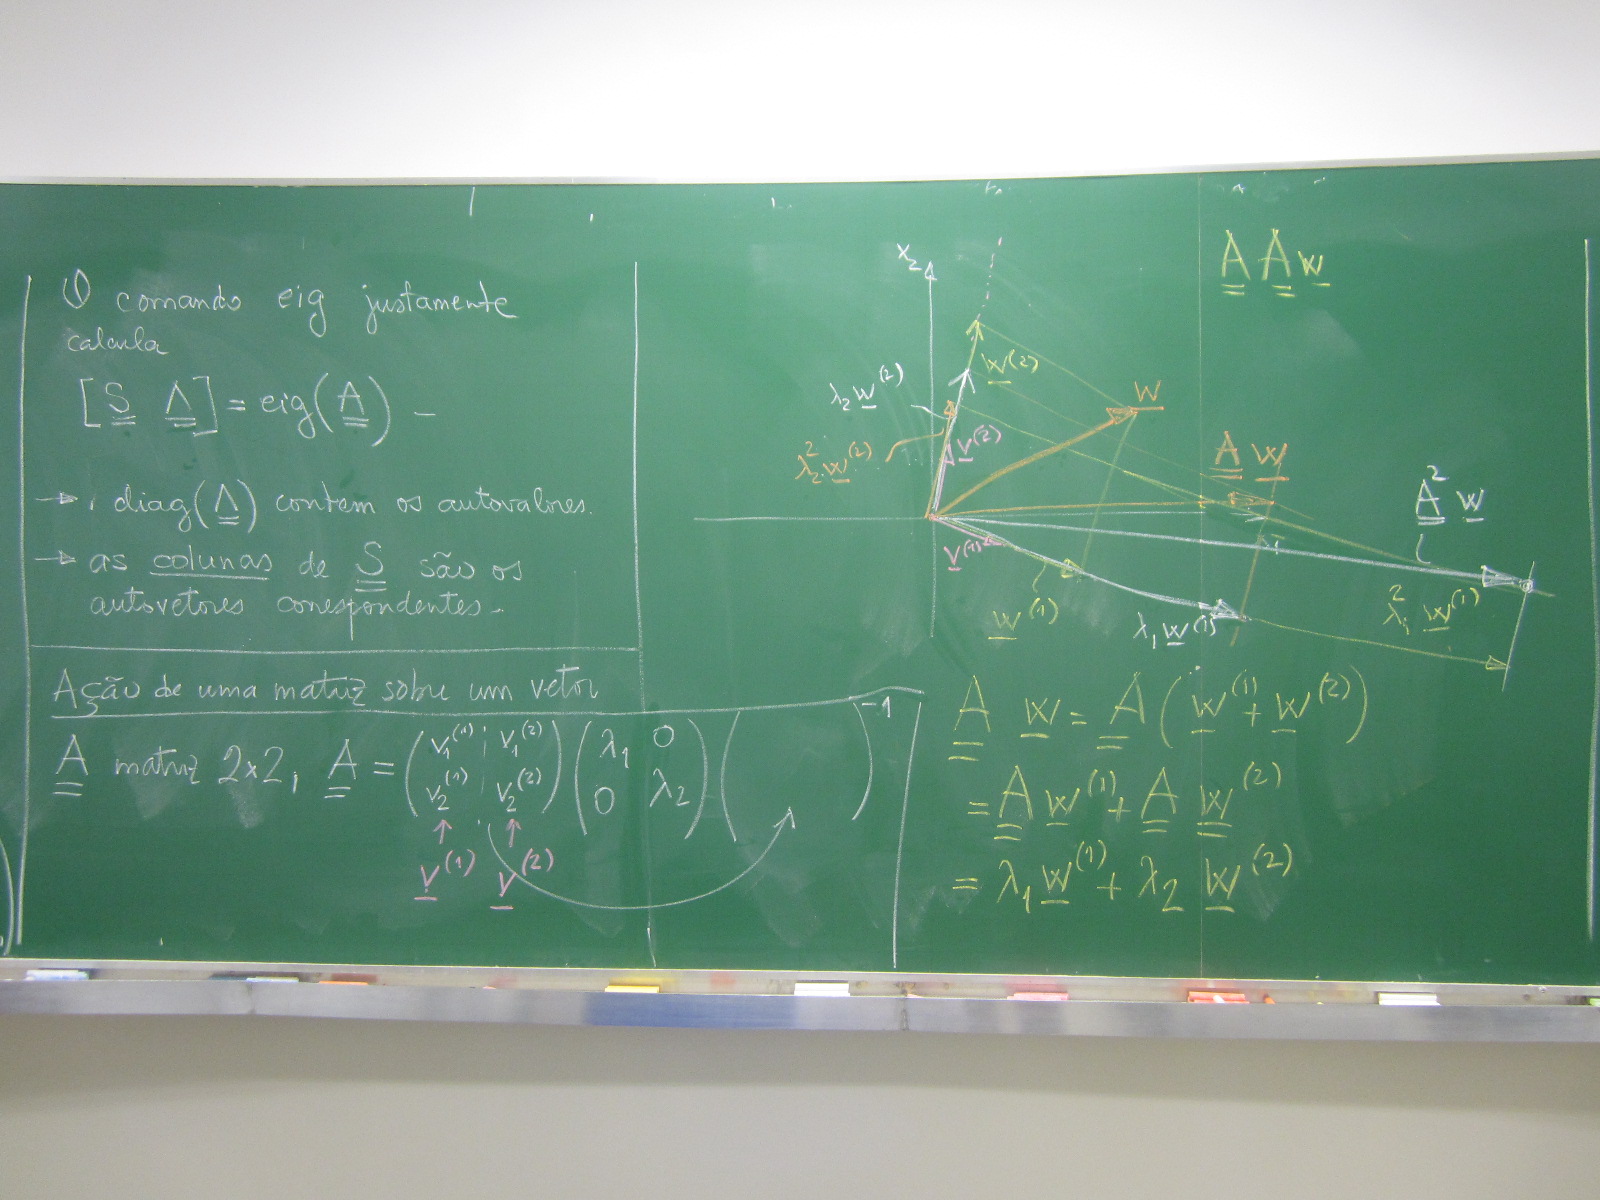 O comando eig justamente
calcula
[S Λ] = eig(A) -
→ diag(Λ) contem os autovalores.
→ as colunas de S são os
autovetores correspondentes.
Ação de uma matriz sobre um vetor
A matriz 2×2, A = (v₁⁽¹⁾ v₁⁽²⁾ ; v₂⁽¹⁾ v₂⁽²⁾) (λ₁ 0 ; 0 λ₂) ( )⁻¹
v⁽¹⁾ v⁽²⁾
x₂
A A w
w⁽²⁾
λ₂ w⁽²⁾
w
v⁽²⁾
λ₂² w⁽²⁾
A w
A² w
v⁽¹⁾
w⁽¹⁾
λ₁ w⁽¹⁾
λ₁² w⁽¹⁾
A w = A (w⁽¹⁾ + w⁽²⁾)
= A w⁽¹⁾ + A w⁽²⁾
= λ₁ w⁽¹⁾ + λ₂ w⁽²⁾